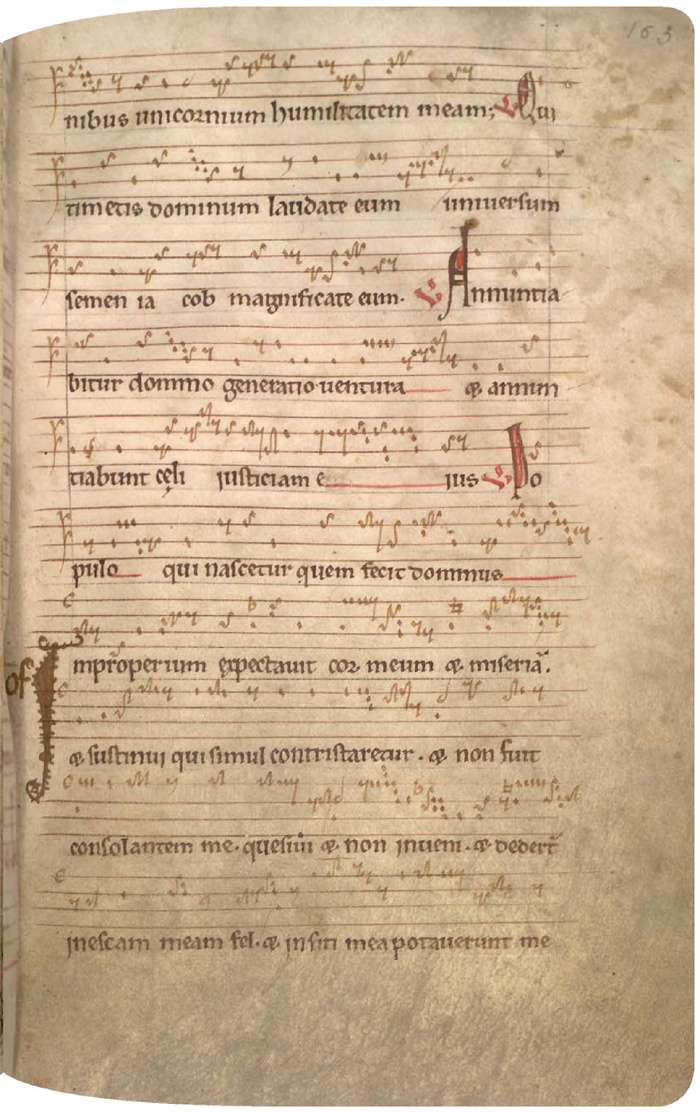 163
nibus unicornium humilitatem meam; V Qui
timetis dominum laudate eum universum
semen ia cob magnificate eum. V Annuntia
bitur domino generatio uentura & annun
tiabunt cęli iusticiam e ius V Po
pulo qui nascetur quem fecit dominus
of Improperium expectauit cor meum & miseriā.
& sustinui qui simul contristaretur. & non fuit
consolantem me. quesiui & non inueni. & dedert̄
inescam meam fel. & insiti mea potauerunt me